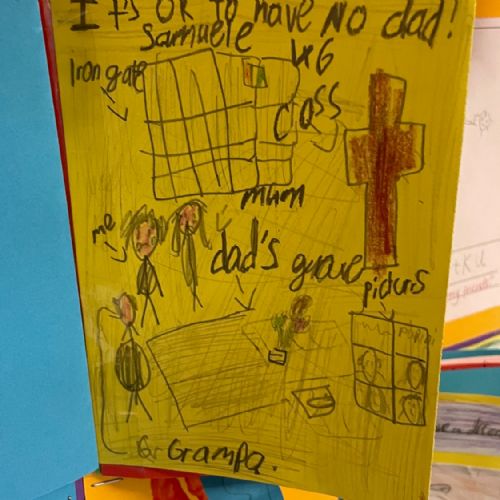 It's OK to have NO dad!
Samuele
W6
Iron gate
Class
mum
me
dad's grave
picturs
Gr Grampa.